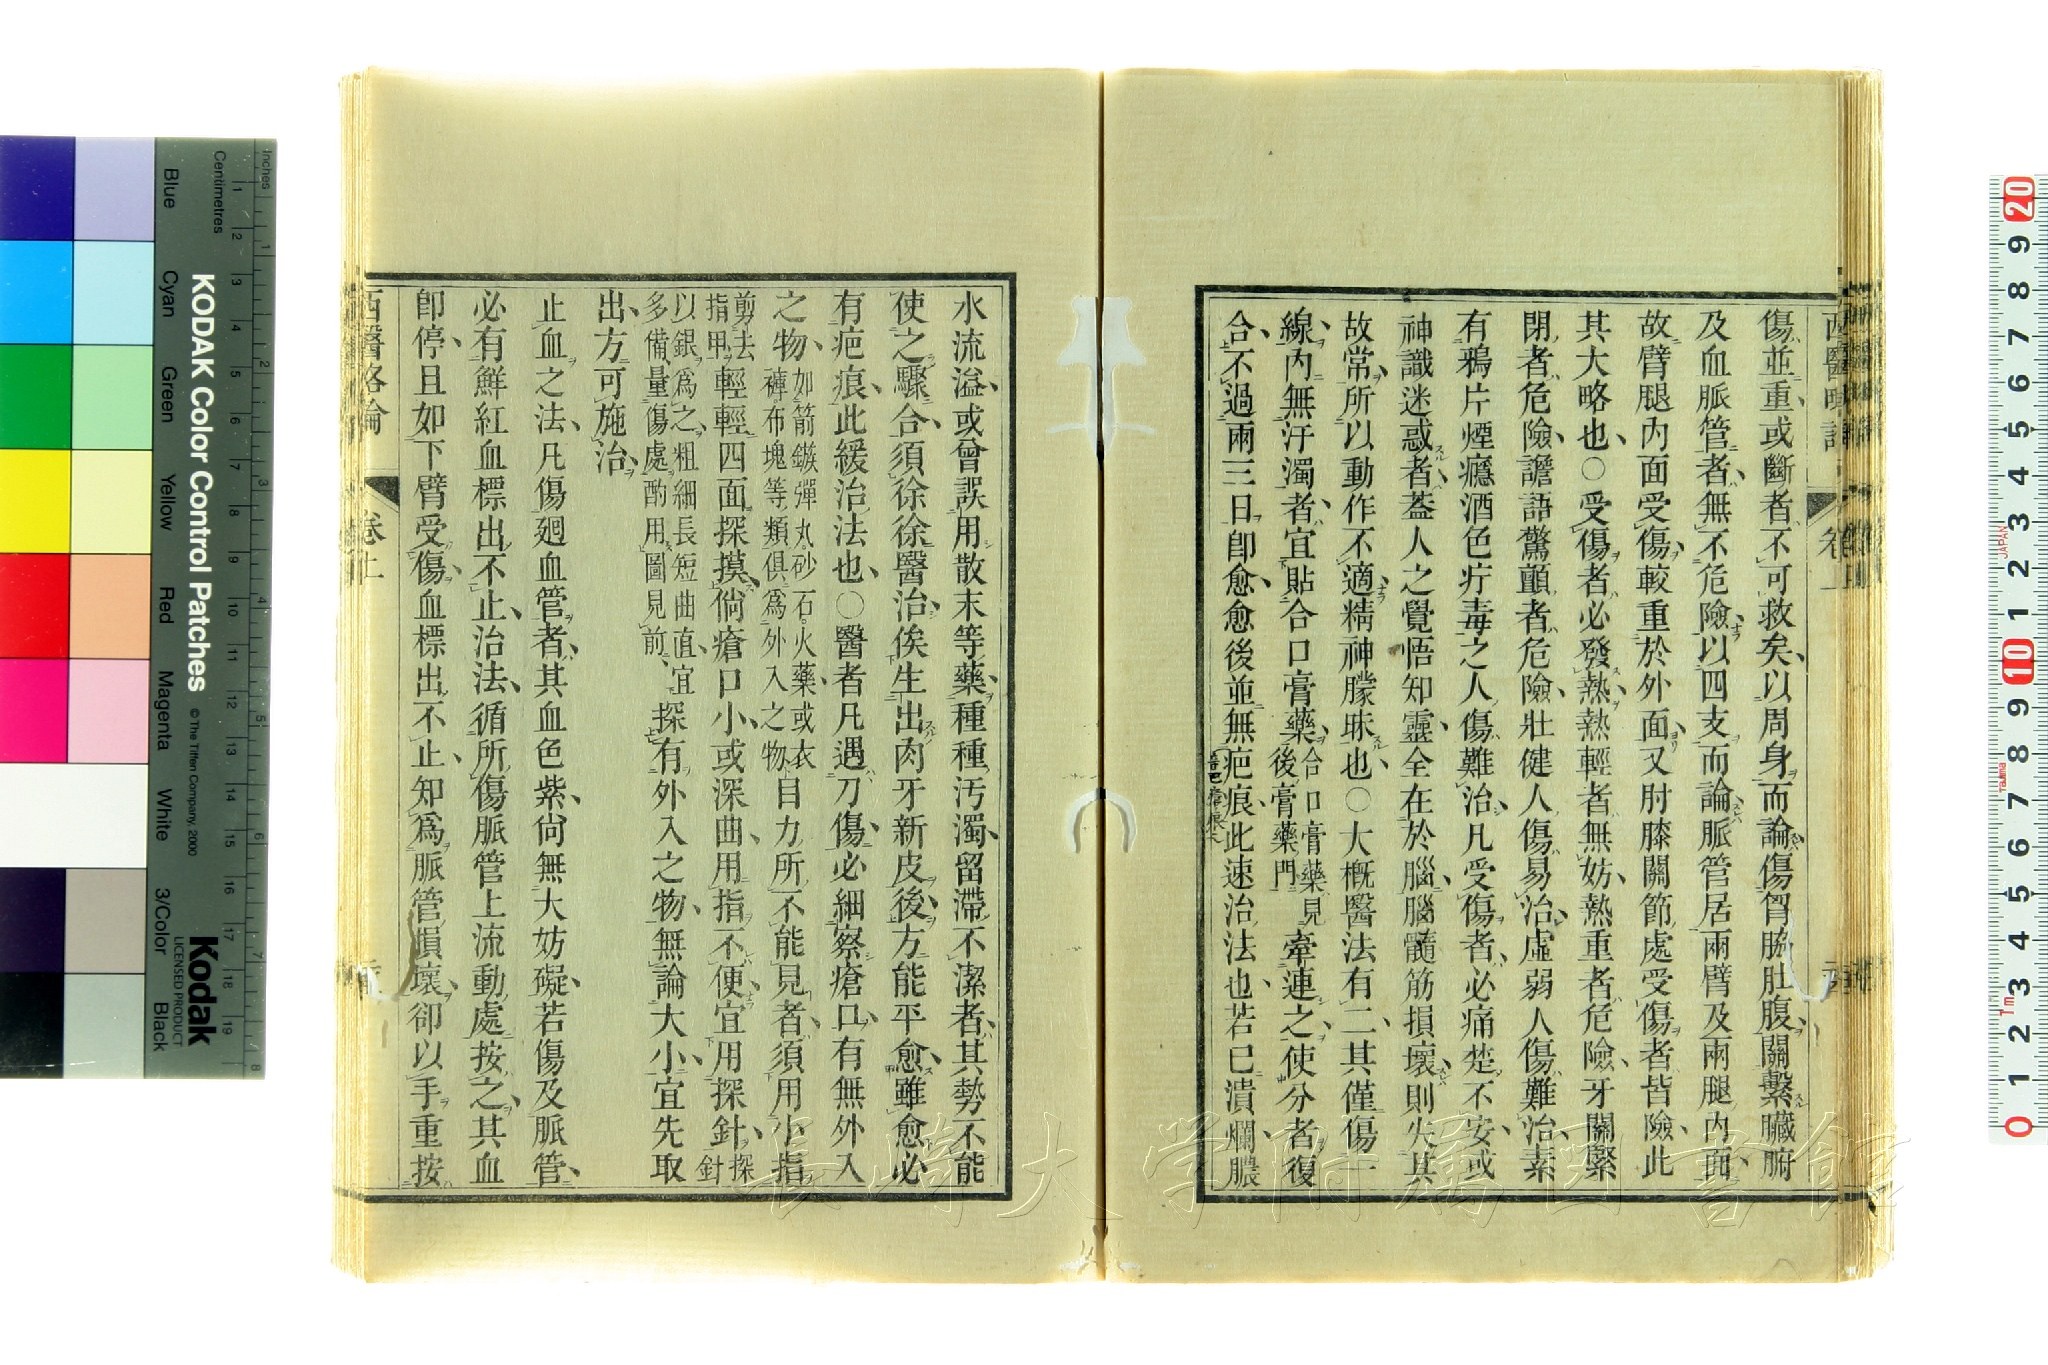 傷並重或斷者不可救矣以周身而論傷胷脇肚腹關繫臟腑
及血脈管者無不危險以四支而論脈管居兩臂及兩腿內面
故臂腿內面受傷較重於外面又肘膝關節處受傷者皆險此
其大略也○受傷者必發熱熱輕者無妨熱重者危險牙關緊
閉者危險譫語驚顫者危險壯健人傷易治虛弱人傷難治素
有鴉片煙癮酒色疔毒之人傷難治凡受傷者必痛楚不安或
神識迷惑者葢人之覺悟知靈全在於腦腦髓筋損壞則失其
故常所以動作不適精神朦昧也○大概醫法有二其僅傷一
線內無汙濁者宜貼合口膏藥合口膏藥見後膏藥門牽連之使分者復
合不過兩三日卽愈愈後並無疤痕此速治法也若已潰爛膿
水流溢或曾誤用散末等藥種種汚濁留滯不潔者其勢不能
使之驟合須徐徐醫治俟生出肉牙新皮後方能平愈雖愈必
有疤痕此緩治法也○醫者凡遇刀傷必細察瘡口有無外入
之物如箭鏃彈丸砂石火藥或衣褲布塊等類俱爲外入之物目力所不能見者須用小指
剪去指甲輕輕四面探摸倘瘡口小或深曲用指不便宜用探針探針
以銀爲之粗細長短曲直宜多備量傷處酌用圖見前探有外入之物無論大小宜先取
出方可施治
止血之法凡傷廻血管者其血色紫尙無大妨礙若傷及脈管
必有鮮紅血標出不止治法循所傷脈管上流動處按之其血
卽停且如下臂受傷血標出不止知爲脈管損壞卻以手重按
西醫略論
卷上
KODAK Color Control Patches
© The Tiffen Company, 2000
Kodak
LICENSED PRODUCT
Inches
Centimetres
Blue
Cyan
Green
Yellow
Red
Magenta
White
3/Color
Black
長崎大学附属図書館
JAPAN